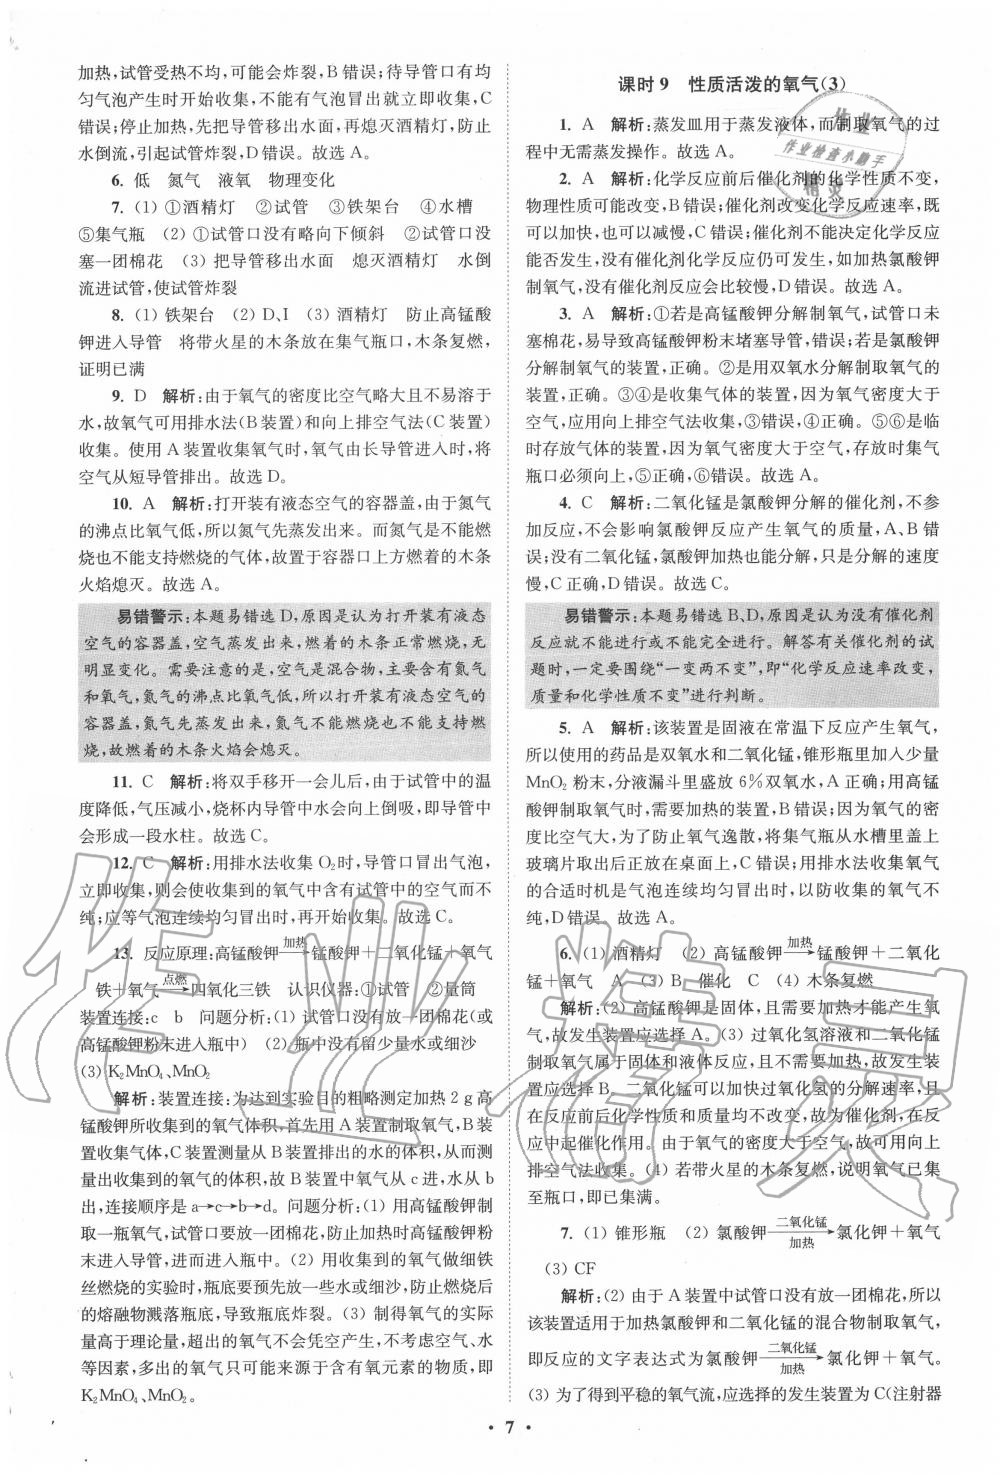 加热,试管受热不均,可能会炸裂,B 错误;待导管口有均
匀气泡产生时开始收集,不能有气泡冒出就立即收集,C
错误;停止加热,先把导管移出水面,再熄灭酒精灯,防止
水倒流,引起试管炸裂,D 错误。故选 A。
6. 低 氮气 液氧 物理变化
7. (1) ①酒精灯 ②试管 ③铁架台 ④水槽
⑤集气瓶 (2) ①试管口没有略向下倾斜 ②试管口没
塞一团棉花 (3) 把导管移出水面 熄灭酒精灯 水倒
流进试管,使试管炸裂
8. (1) 铁架台 (2) D、I (3) 酒精灯 防止高锰酸
钾进入导管 将带火星的木条放在集气瓶口,木条复燃,
证明已满
9. D 解析:由于氧气的密度比空气略大且不易溶于
水,故氧气可用排水法(B 装置)和向上排空气法(C 装置)
收集。使用 A 装置收集氧气时,氧气由长导管进入时,将
空气从短导管排出。故选 D。
10. A 解析:打开装有液态空气的容器盖,由于氮气
的沸点比氧气低,所以氮气先蒸发出来。而氮气是不能燃
烧也不能支持燃烧的气体,故置于容器口上方燃着的木条
火焰熄灭。故选 A。
易错警示:本题易错选 D,原因是认为打开装有液态
空气的容器盖,空气蒸发出来,燃着的木条正常燃烧,无
明显变化。需要注意的是,空气是混合物,主要含有氮气
和氧气,氮气的沸点比氧气低,所以打开装有液态空气的
容器盖,氮气先蒸发出来,氮气不能燃烧也不能支持燃
烧,故燃着的木条火焰会熄灭。
11. C 解析:将双手移开一会儿后,由于试管中的温
度降低,气压减小,烧杯内导管中水会向上倒吸,即导管中
会形成一段水柱。故选 C。
12. C 解析:用排水法收集 O₂时,导管口冒出气泡,
立即收集,则会使收集到的氧气中含有试管中的空气而不
纯;应等气泡连续均匀冒出时,再开始收集。故选 C。
13. 反应原理:高锰酸钾 加热→ 锰酸钾＋二氧化锰＋氧气
铁＋氧气 点燃→ 四氧化三铁 认识仪器:①试管 ②量筒
装置连接:c b 问题分析:(1) 试管口没有放一团棉花(或
高锰酸钾粉末进入瓶中) (2) 瓶中没有留少量水或细沙
(3) K₂MnO₄、MnO₂
解析:装置连接:为达到实验目的粗略测定加热 2 g 高
锰酸钾所收集到的氧气体积,首先用 A 装置制取氧气,B 装
置收集气体,C 装置测量从 B 装置排出的水的体积,从而测
量出收集到的氧气的体积,故 B 装置中氧气从 c 进,水从 b
出,连接顺序是 a→c→b→d。问题分析:(1) 用高锰酸钾制
取一瓶氧气,试管口要放一团棉花,防止加热时高锰酸钾粉
末进入导管,进而进入瓶中。(2) 用收集到的氧气做细铁
丝燃烧的实验时,瓶底要预先放一些水或细沙,防止燃烧后
的熔融物溅落瓶底,导致瓶底炸裂。(3) 制得氧气的实际
量高于理论量,超出的氧气不会凭空产生,不考虑空气、水
等因素,多出的氧气只可能来源于含有氧元素的物质,即
K₂MnO₄、MnO₂。
课时 9 性质活泼的氧气(3)
1. A 解析:蒸发皿用于蒸发液体,而制取氧气的过
程中无需蒸发操作。故选 A。
2. A 解析:化学反应前后催化剂的化学性质不变,
物理性质可能改变,B 错误;催化剂改变化学反应速率,既
可以加快,也可以减慢,C 错误;催化剂不能决定化学反应
能否发生,没有催化剂化学反应仍可发生,如加热氯酸钾
制氧气,没有催化剂反应会比较慢,D 错误。故选 A。
3. A 解析:①若是高锰酸钾分解制氧气,试管口未
塞棉花,易导致高锰酸钾粉末堵塞导管,错误;若是氯酸钾
分解制氧气的装置,正确。②是用双氧水分解制取氧气的
装置,正确。③④是收集气体的装置,因为氧气密度大于
空气,应用向上排空气法收集,③错误,④正确。⑤⑥是临
时存放气体的装置,因为氧气密度大于空气,存放时集气
瓶口必须向上,⑤正确,⑥错误。故选 A。
4. C 解析:二氧化锰是氯酸钾分解的催化剂,不参
加反应,不会影响氯酸钾反应产生氧气的质量,A、B 错
误;没有二氧化锰,氯酸钾加热也能分解,只是分解的速度
慢,C 正确,D 错误。故选 C。
易错警示:本题易错选 B、D,原因是认为没有催化剂
反应就不能进行或不能完全进行。解答有关催化剂的试
题时,一定要围绕“一变两不变”,即“化学反应速率改变,
质量和化学性质不变”进行判断。
5. A 解析:该装置是固液在常温下反应产生氧气,
所以使用的药品是双氧水和二氧化锰,锥形瓶里加入少量
MnO₂ 粉末,分液漏斗里盛放 6%双氧水,A 正确;用高锰
酸钾制取氧气时,需要加热的装置,B 错误;因为氧气的密
度比空气大,为了防止氧气逸散,将集气瓶从水槽里盖上
玻璃片取出后正放在桌面上,C 错误;用排水法收集氧气
的合适时机是气泡连续均匀冒出时,以防收集的氧气不
纯,D 错误。故选 A。
6. (1) 酒精灯 (2) 高锰酸钾 加热→ 锰酸钾＋二氧化
锰＋氧气 A (3) B 催化 C (4) 木条复燃
解析:(2) 高锰酸钾是固体,且需要加热才能产生氧
气,故发生装置应选择 A。(3) 过氧化氢溶液和二氧化锰
制取氧气属于固体和液体反应,且不需要加热,故发生装
置应选择 B。二氧化锰可以加快过氧化氢的分解速率,且
在反应前后化学性质和质量均不改变,故为催化剂,在反
应中起催化作用。由于氧气的密度大于空气,故可用向上
排空气法收集。(4) 若带火星的木条复燃,说明氧气已集
至瓶口,即已集满。
7. (1) 锥形瓶 (2) 氯酸钾 二氧化锰/加热→ 氯化钾＋氧气
(3) CF
解析:(2) 由于 A 装置中试管口没有放一团棉花,所以
该装置适用于加热氯酸钾和二氧化锰的混合物制取氧气,
即反应的文字表达式为氯酸钾 二氧化锰/加热→ 氯化钾＋氧气。
(3) 为了得到平稳的氧气流,应选择的发生装置为 C(注射器
• 7 •
作业
作业检查小助手
精灵
作业精灵